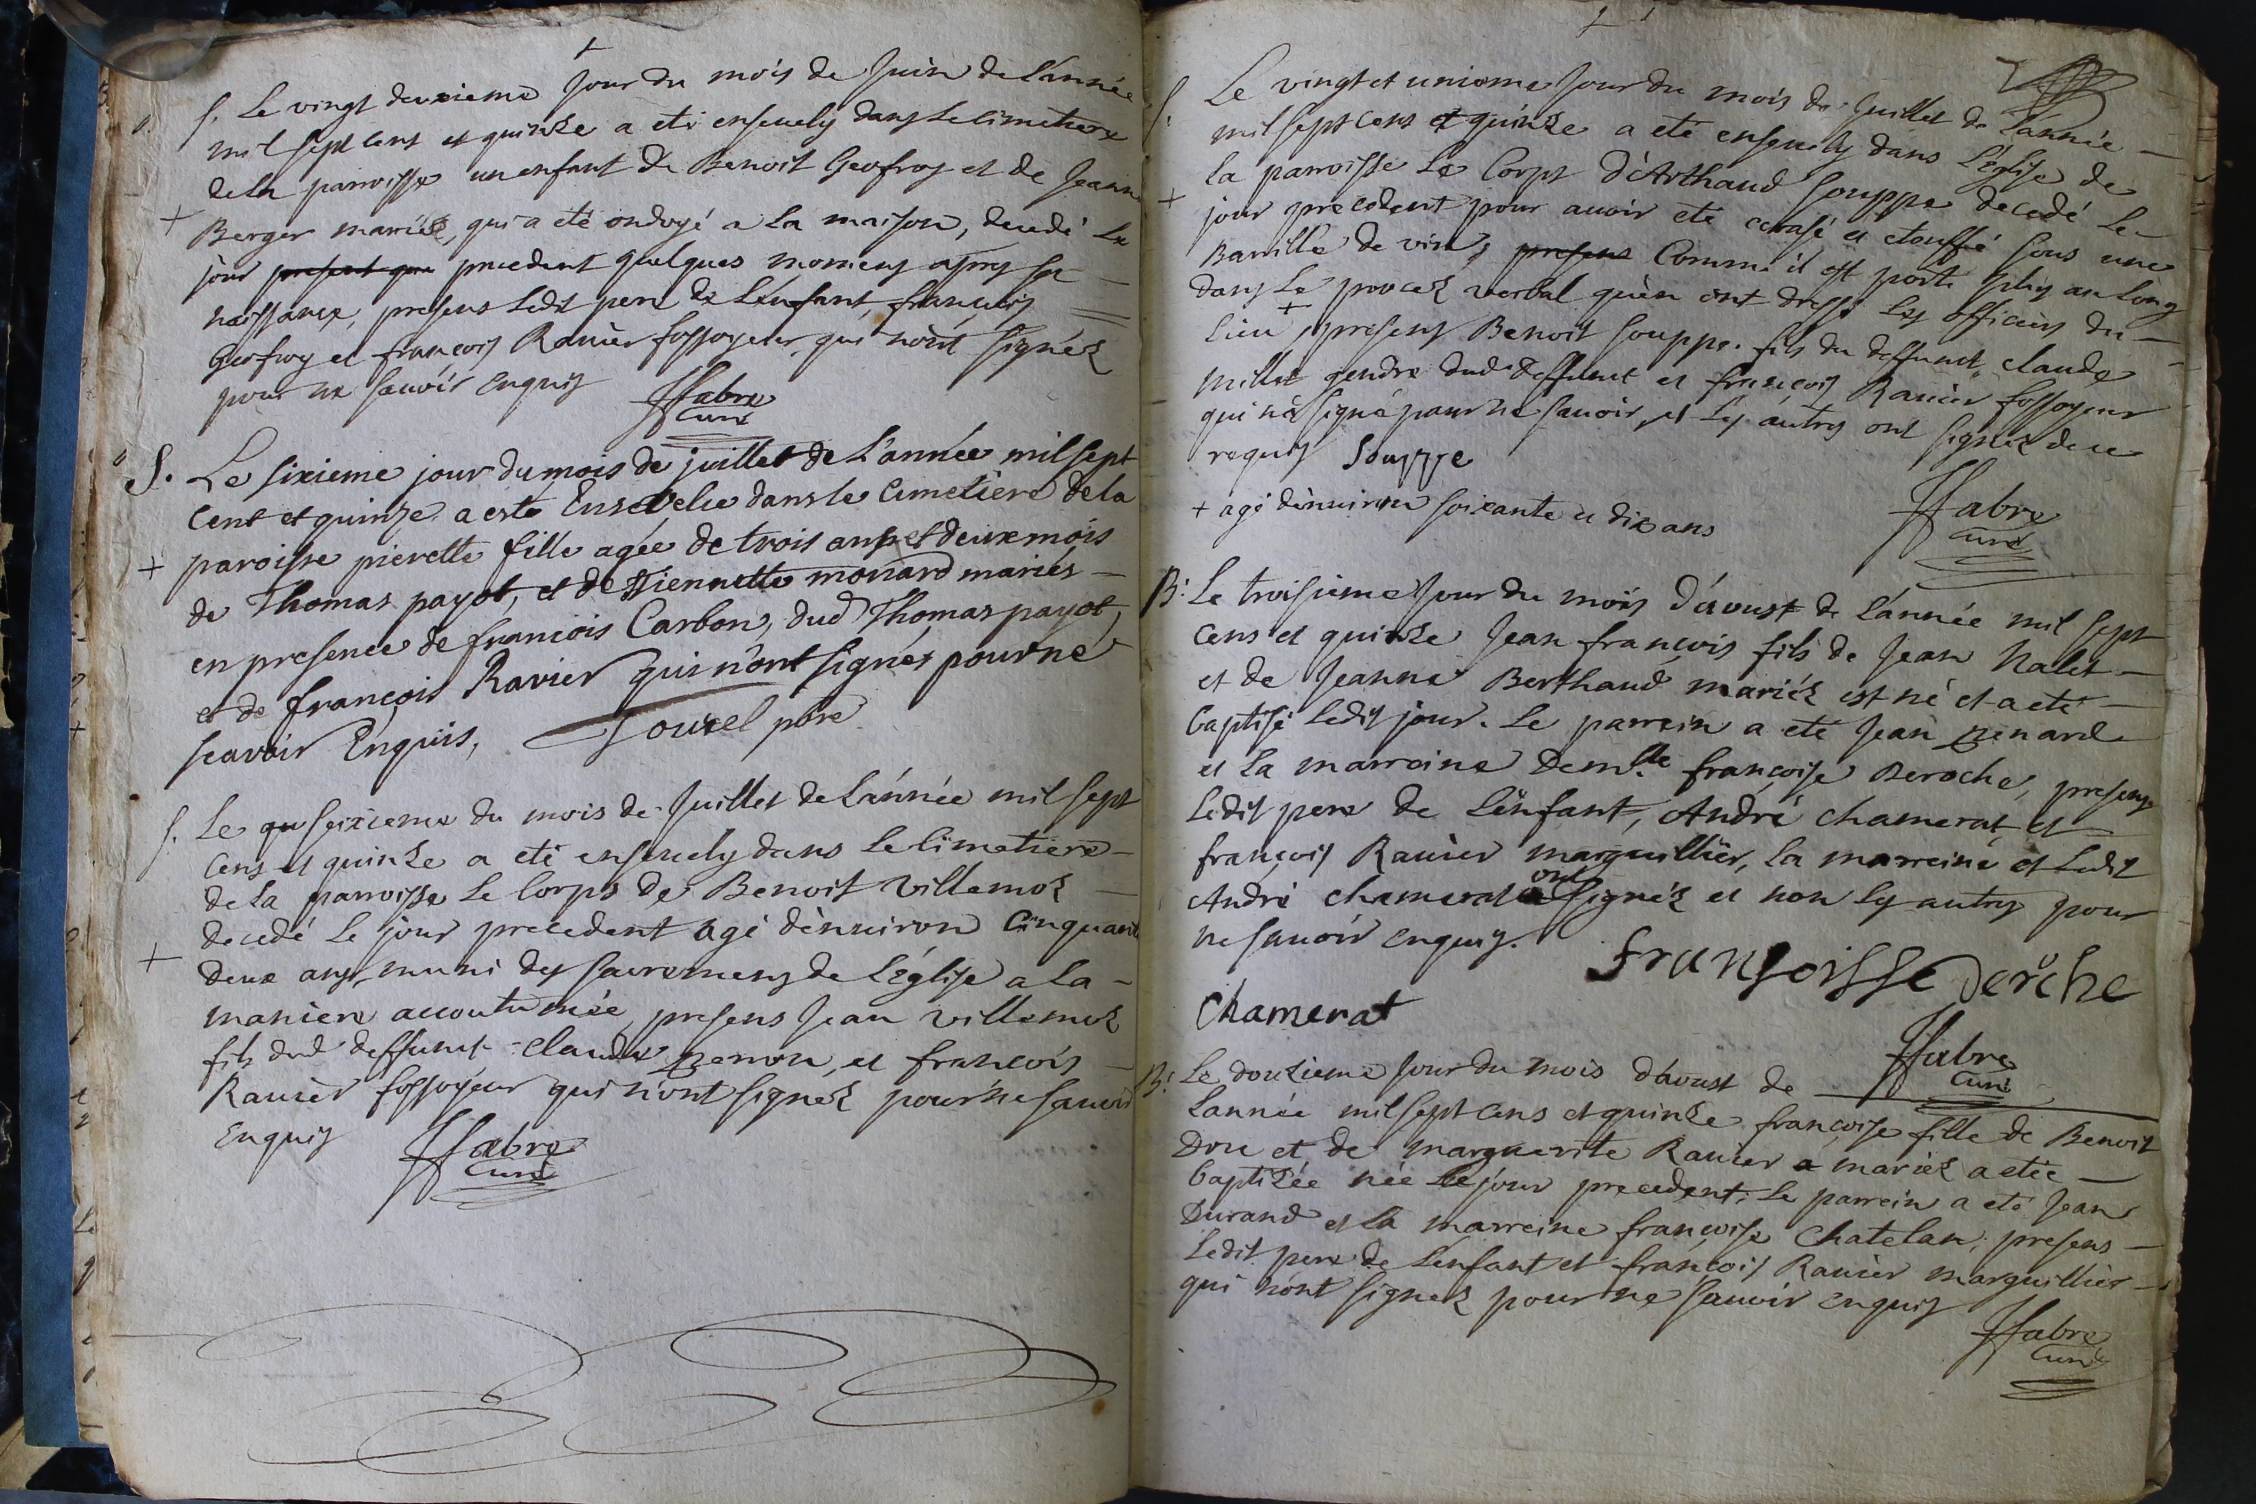 S. Le vingt deuxieme Jour du mois de Juin de l'année
mil sept cent et quinze a eté enseuely dans le cimetiere
de la parroisse un enfant de Benoit Geofroy et de Jeanne
+ Berger mariéz, qui a eté ondoyé a la maison, decedé le
jour present que precedent quelques momens apres sa
naissance, presens ledit pere de l'enfant, françois
Geofroy et françois Rauier fossoyeur qui n'ont signéz
pour ne sauoir enquis
Ffabre
Curé
S. Le sixieme jour du mois de juillet de L'année mil sept
cent et quinze a esté Ensevelie dans le Cimetiere de la
+ paroisse pierette fille agée de trois ans et deux mois
de Thomas payot, et de Etiennette monard mariés
en presence de francois Carbon, dud Thomas payot,
et de françois Ravier qui n'ont signés pour ne
scavoir Enquis, Tourel pbre
S. Le qu seixieme du mois de Juillet de l'année mil sept
cens et quinze a eté enseuely dans le Cimetiere
de la parroisse le Corps de Benoit Villemoz
decedé le jour precedent agé d'enuiron Cinquante
+ deux ans, muni des sacremens de l'église a la
maniere accoutumée, presens Jean villemoz
fils dud deffunct Claude perron, et francois
Rauier fossoyeur qui n'ont signéz pour ne sauoir
Enquis
Ffabre
Curé
S. Le vingt et unieme Jour du mois de Juillet de l'année
mil sept cens et quinze a eté enseuely dans l'église de
+ la parroisse le Corps d'Arthaud Souppe decedé le
jour precedent pour auoir eté ecrasé et etouffé sous une
Barrille de vin, presens Comme il est porté plus au long
dans le procez verbal qu'en ont dressé les officiers du
lieu + presens Benoit Souppe fils du deffunct, claude
Millet gendre dud deffunct et françois Rauier fossoyeur
qui n'a signé pour ne sauoir, et les autres ont signez de ce
requis Souppe
+ agé d'enuiron soixante et dix ans
Ffabre
Curé
B: Le troisieme Jour du mois d'Aoust de l'année mil sept
cens et quinze Jean françois fils de Jean Nalet
et de Jeanne Berthaud mariéz est né et a eté
baptisé ledit jour. Le parrein a eté Jean penard
et la marraine Dem.lle françoise Beroche, presens
ledit pere de l'enfant, André chamerat et
françois Rauier marguillier, la marreine et ledit
André chamerat ont signéz et non les autres pour
ne sauoir enquis.
franſoisse Deroche
Chamerat
Ffabre
Curé
B: Le douzieme Jour du mois d'Aoust de
l'année mil sept cens et quinze françoise fille de Benoit
Dru et de marguerite Rauier a mariéz a eteé
baptizée née le jour precedent. Le parrein a eté Jean
Durand et la marreine françoise Chatelan, presens
ledit pere de l'enfant et françois Rauier marguillier
qui n'ont signez pour ne sauoir enquis
Ffabre
Curé